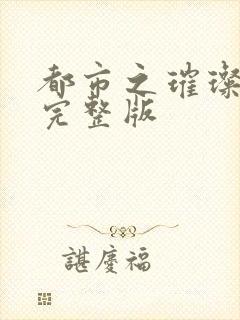 都市之璀璨
完整版
諶慶福